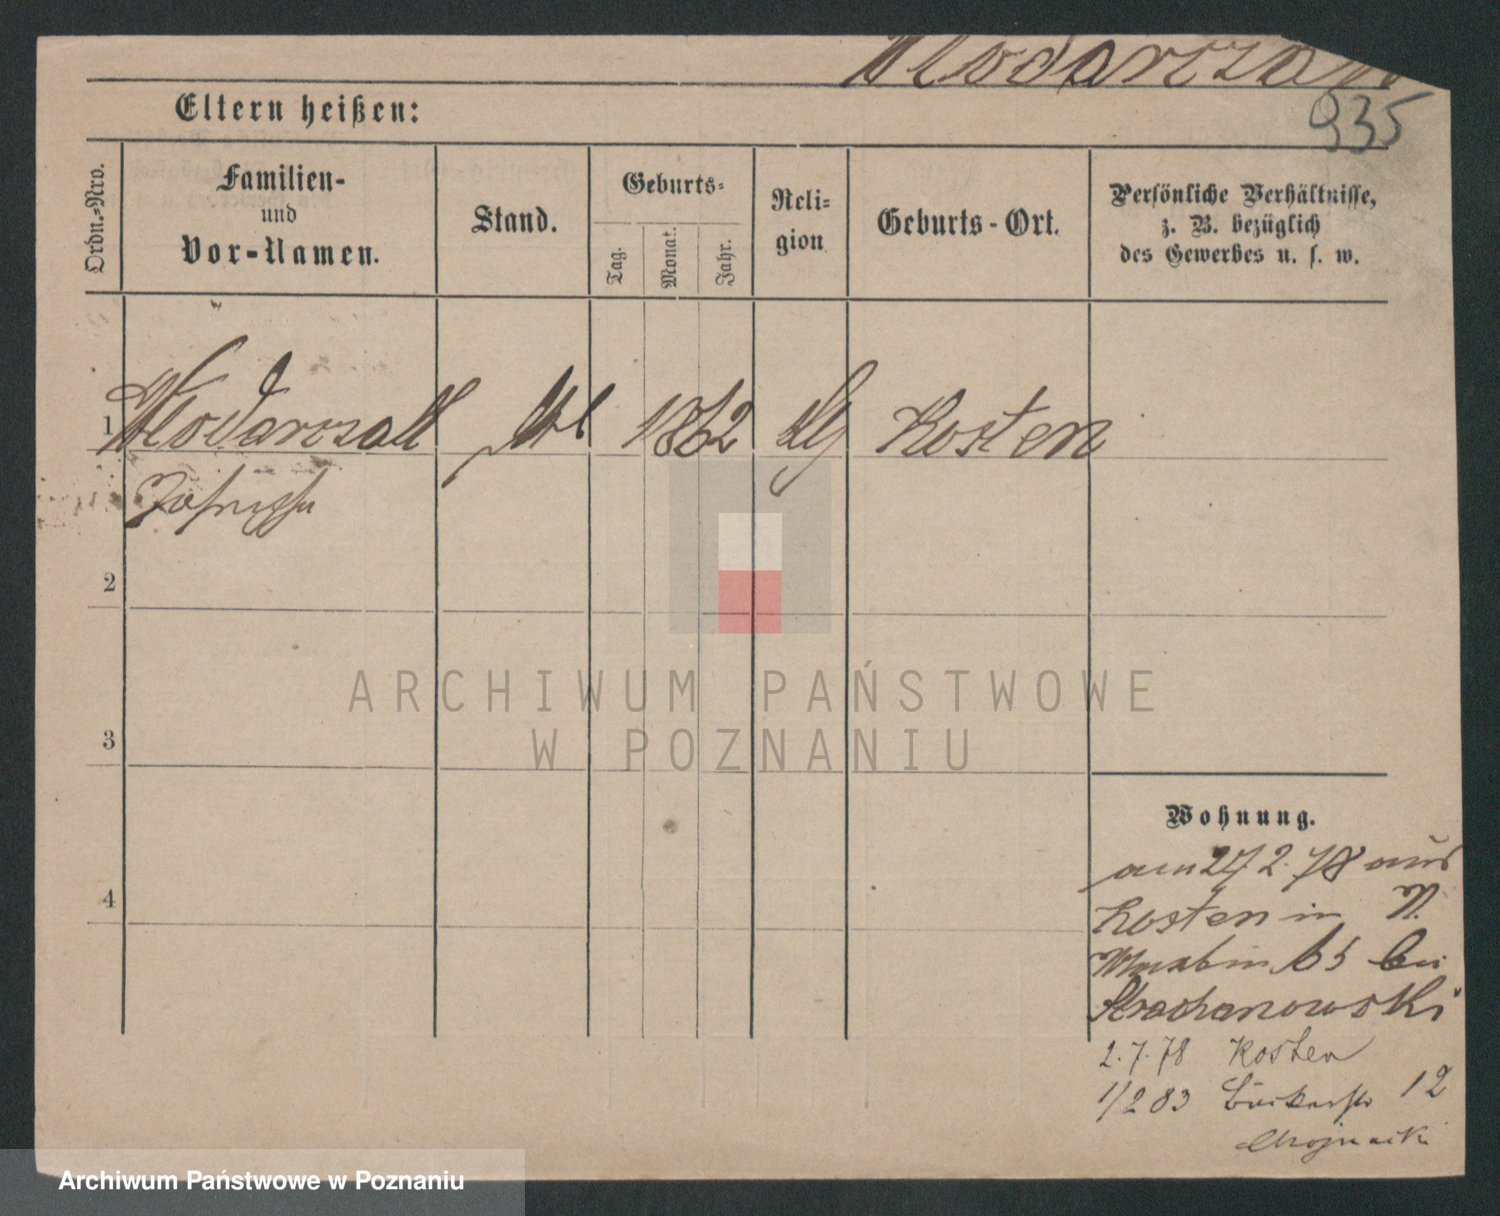 Wlodarczak
935
Eltern heißen:
Ordn.=Nro.
Familien-
und
Vor-Namen.
Stand.
Geburts=
Tag.
Monat.
Jahr.
Reli=
gion
Geburts-Ort.
Persönliche Verhältnisse,
z. B. bezüglich
des Gewerbes u. s. w.
1 Wlodarczak 1862 Kosten
2
3
4
ARCHIWUM PAŃSTWOWE
W POZNANIU
Wohnung.
am 27.2.78 aus
Kosten in
65 bei
2.7.78 Kosten
1/2 83 Bäckerstr 12
Chojnacki
Archiwum Państwowe w Poznaniu